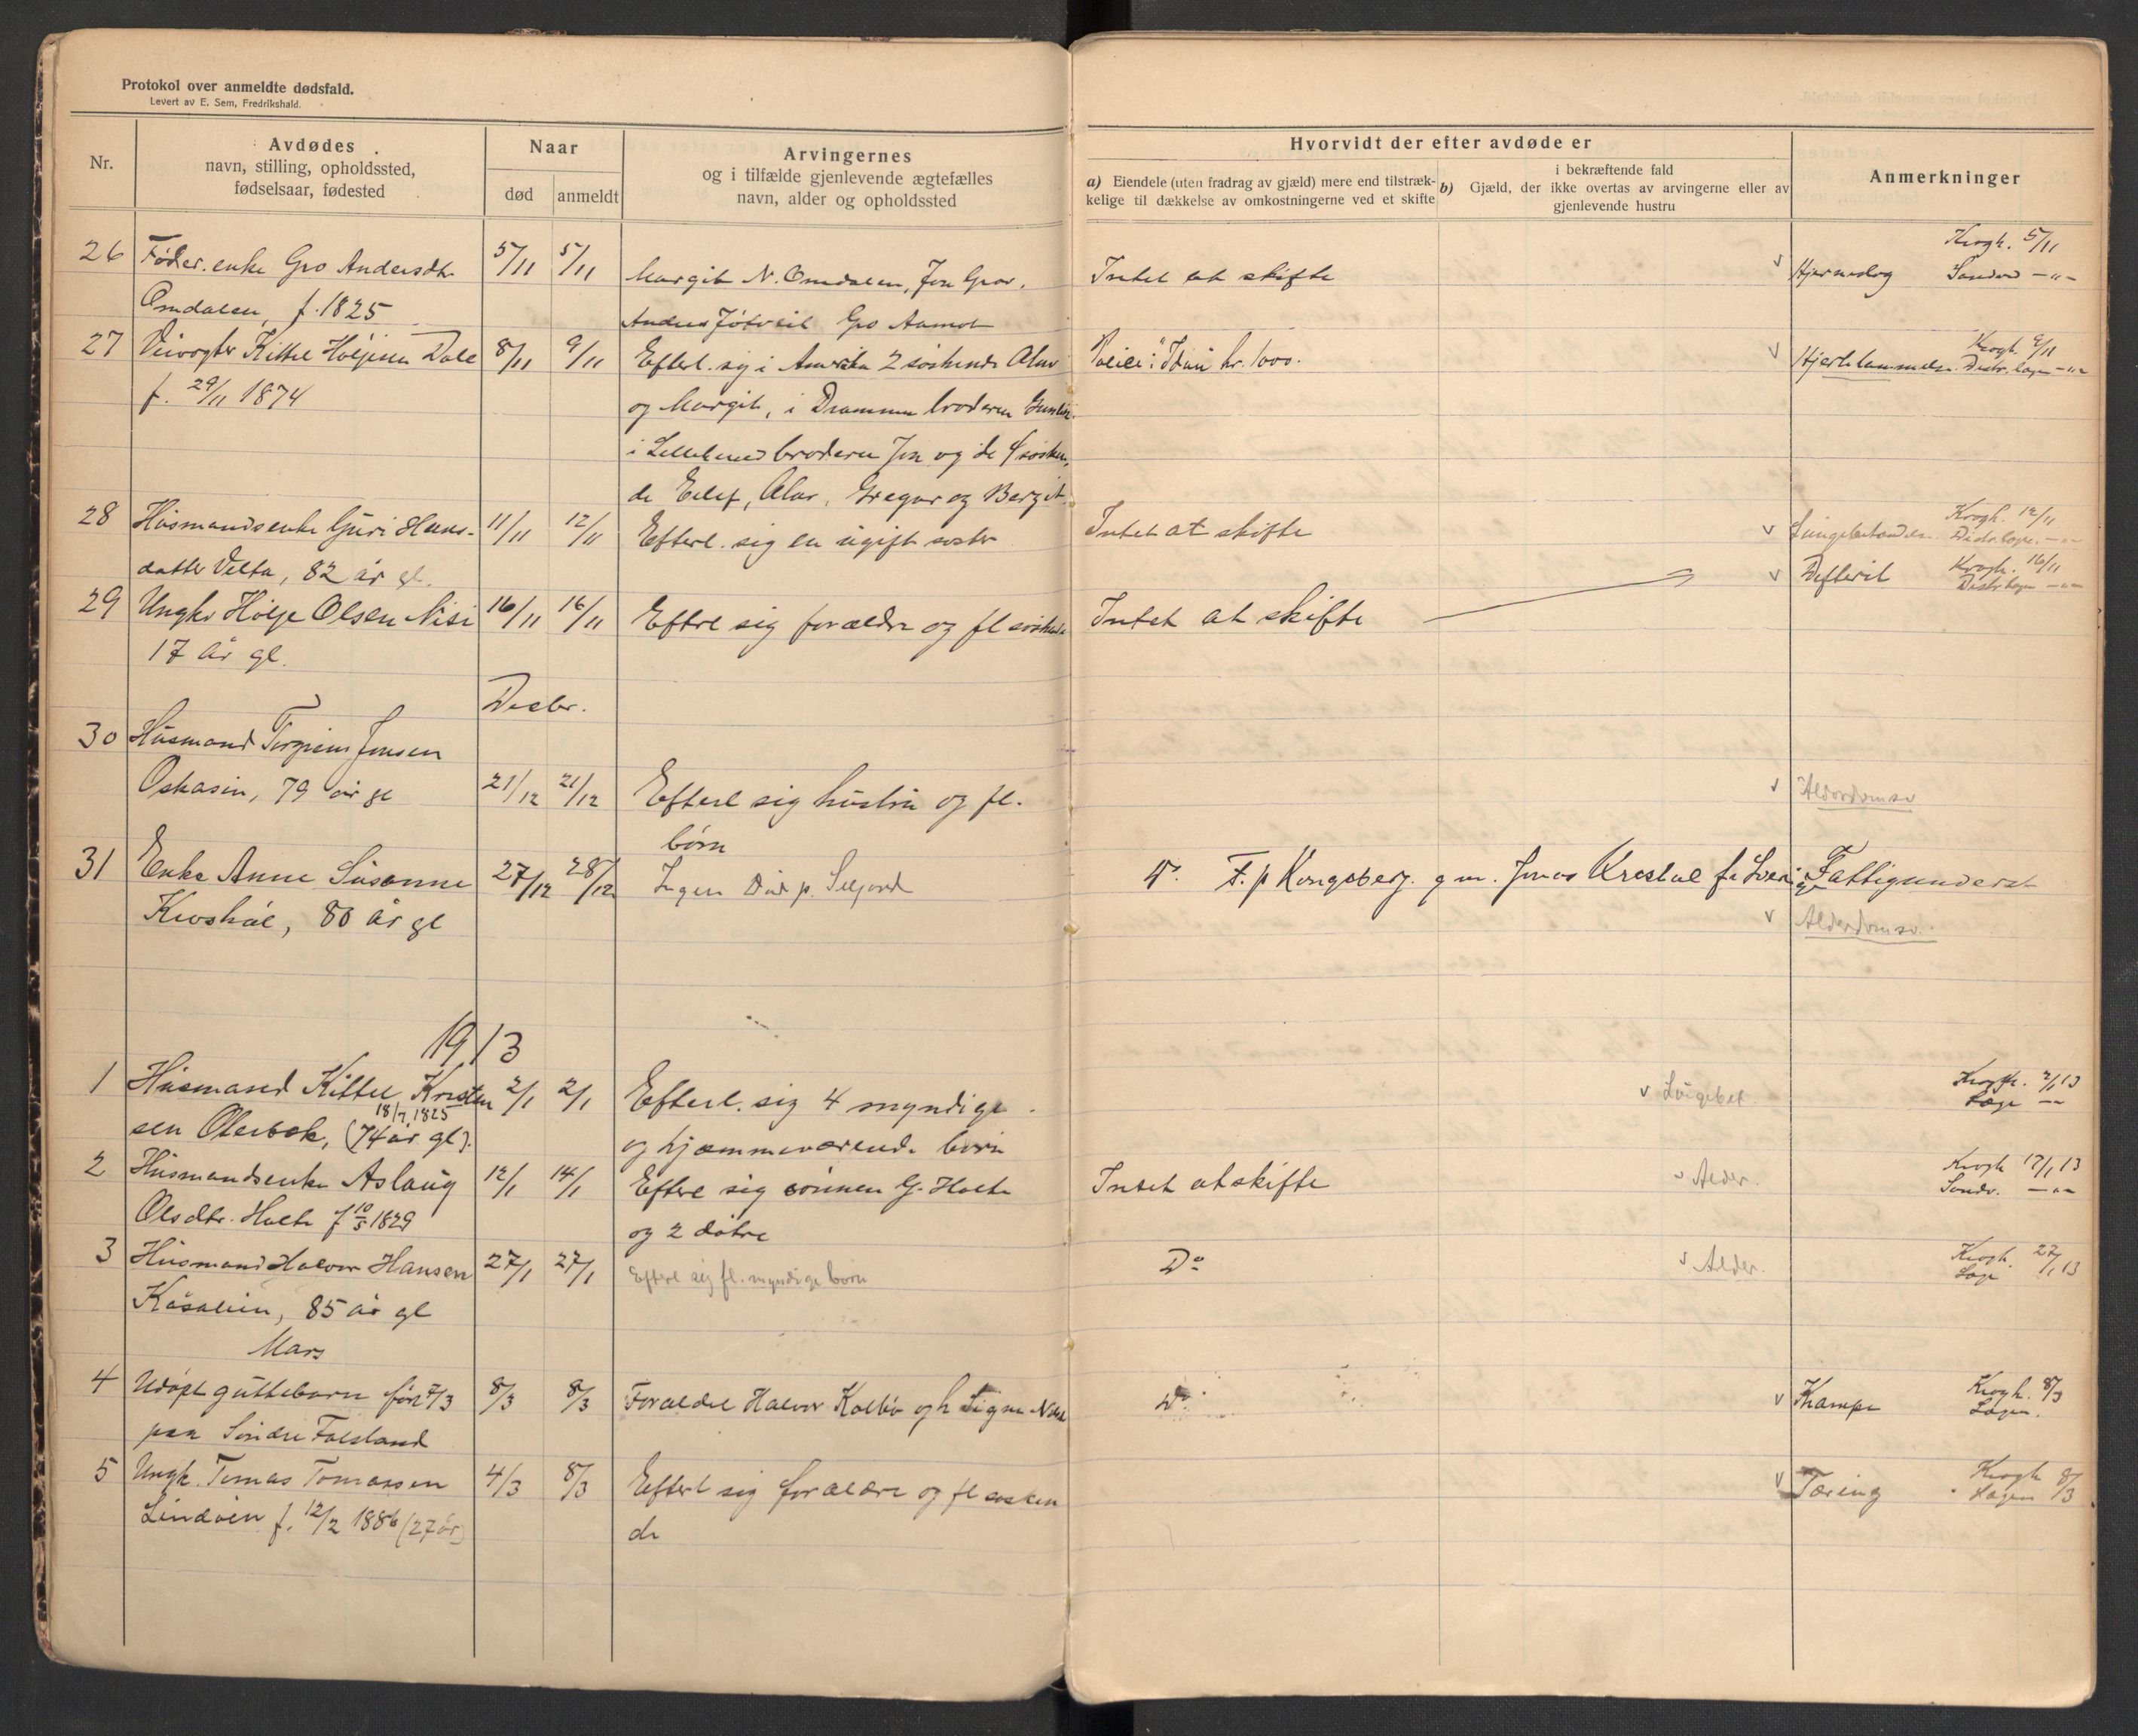 Protokol over anmeldte dødsfald.
Levert av E. Sem, Fredrikshald.
Nr.
Avdødes
navn, stilling, opholdssted,
fødselsaar, fødested
Naar
død
anmeldt
Arvingernes
og i tilfælde gjenlevende ægtefælles
navn, alder og opholdssted
Hvorvidt der efter avdøde er
a) Eiendele (uten fradrag av gjæld) mere end tilstræk-
kelige til dækkelse av omkostningerne ved et skifte
i bekræftende fald
b) Gjæld, der ikke overtas av arvingerne eller av
gjenlevende hustru
Anmerkninger
26 Føder. enke Gro Andersdtr 5/11 5/11 Margit N. Omdalen, Jon Grov. Intet at skifte v Hjerneslag Krogh. 5/11
Omdalen, f. 1825 Anders Gro Aamot
27 Veivogter Kittel Høljesen Dale 8/11 9/11 Efterl. sig i Amerika 2 søskende Olav kr. 1000. v Hjertelammelse Krogh. 9/11
f. 29/11 1874 og Margit, i Drammen broderen
i broderen Jon og de 4 søsken-
de Eilef, Olav, Gregar og Bergit
28 Husmandsenke Guri Hans- 11/11 12/11 Efterl. sig en ugift søster Intet at skifte v Krogh. 12/11
datter Velta, 82 år gl.
29 Ungkr Hølje Olsen Nisi 16/11 16/11 Efterl sig forældre og fl søskende Intet at skifte v Difterit Krogh. 16/11
17 år gl.
Decbr.
30 Husmand Jonsen
Oskasin, 79 år gl 21/12 21/12 Efterl sig hustru og fl. v Alderdomssv
børn
31 Enke Anne Susanne 27/12 28/12 Ingen Død p. Seljord Do. F. p Kongsberg. g m. Jonas fr Fattigunderst
80 år gl v Alderdomssv.
1913
1 Husmand Kittel Kristen 2/1 2/1 Efterl. sig 4 myndige v Lungebet Krogh. 2/1 13
18/7 1825
sen Olesbek, (74 år gl). og hjemmeværende børn Læge
2 Husmandsenke Aslaug 12/1 14/1 Efterl sig sønnen G. Holte Intet at skifte v Alder. Krogh 17/1 13
Olsdtr. Holte f 10/5 1829 og 2 døtre
3 Husmand Halvor Hansen 27/1 27/1 Efterl sig fl. myndige børn Do v Alder. Krogh. 27/1 13
Kåsalien, 85 år gl Læge
Mars
4 Udøpt guttebarn født 7/3 8/3 8/3 Forældre Halvor og h Signe Do v Krampe Krogh. 8/3
paa Søndre Lægen.
5 Ungk. Tomas Tomassen 4/3 8/3 Efterl sig forældre og fl søsken v Tæring Krogh 8/3
f. 12/2 1886 (27 år) de Lægen